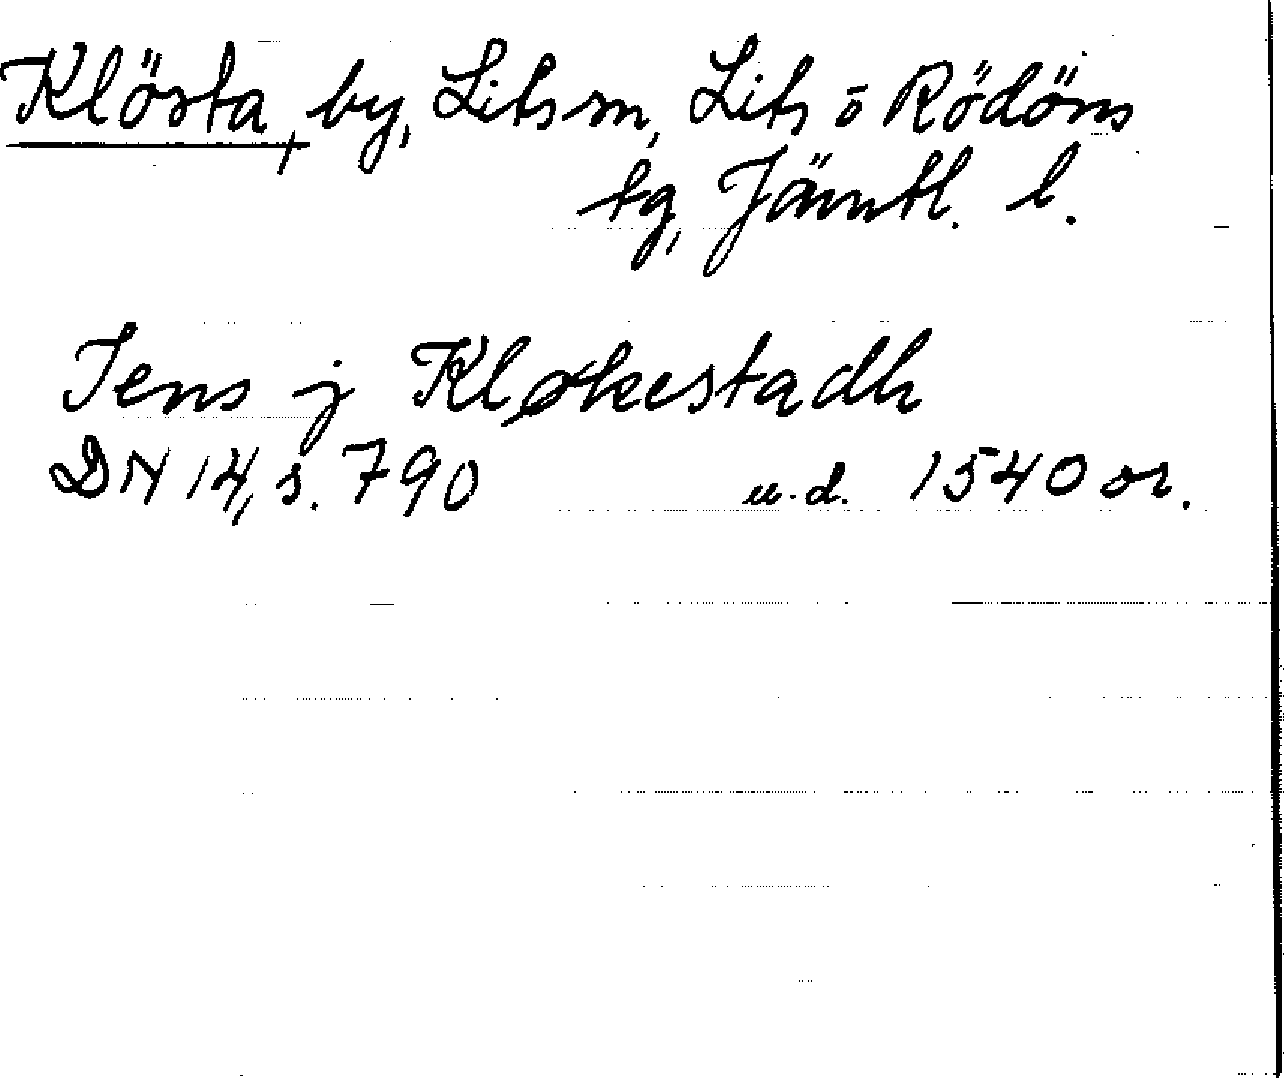 Klösta, by, Lits sn, Lits o Rödöns
tg, Jämtl. l.
Jens j Kløkestadh
DN 14, s. 790 u.d. 1540 or.